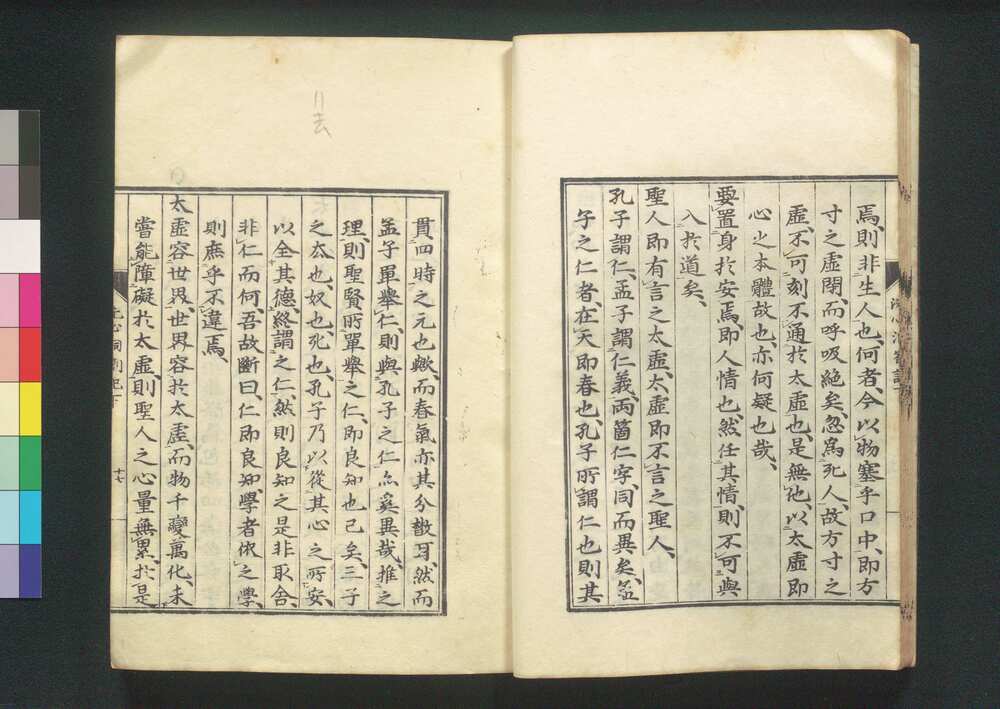 焉、則非生人也、何者、今以物塞乎口中、即方
寸之虛閉、而呼吸絶矣、忽爲死人、故方寸之
虛、不可刻不通於太虛也、是無他、以太虛即
心之本體故也、亦何疑也哉、
要置身於安焉、即人情也、然任其情、則不可與
入於道矣、
聖人即有言之太虛、太虛即不言之聖人、
孔子謂仁、孟子謂仁義、兩箇仁字、同而異矣、蓋
孔子之仁者、在天即春也、孔子所謂仁也、則其
貫四時之元也歟、而春氣亦其分散耳、然而
孟子單舉仁、則與孔子之仁亦奚異哉、推之
理、則聖賢所單舉之仁、即良知也已矣、三子
之去也、奴也、死也、孔子乃以從其心之所安、
以全其德、終謂之仁、然則良知之是非取舍、
非仁而何、吾故斷曰、仁即良知、學者依之學、
則庶乎不違焉、
太虛容世界、世界容於太虛、而物千變萬化、未
嘗能障礙於太虛、則聖人之心量無累、於是
十七